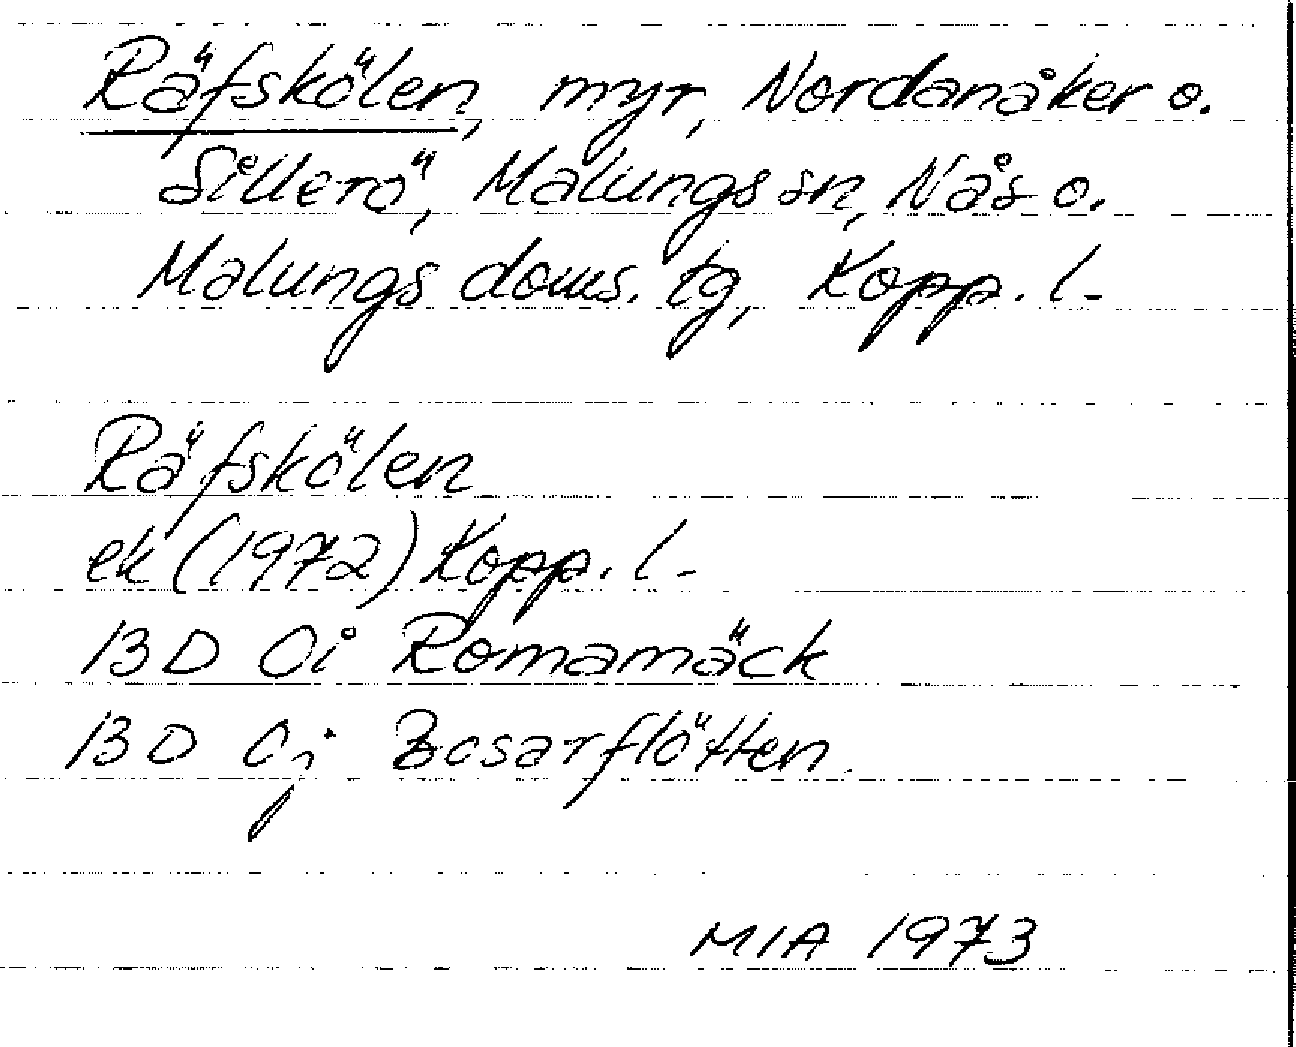 Räfskölen, myr, Nordanåker o.
Sillerö, Malungs sn, Nås o.
Malungs doms. tg, Kopp. l.
Räfskölen
ek (1972) Kopp. l.
13 D 0i Romamäck
13 D 0j Bosarflötten
MIA 1973